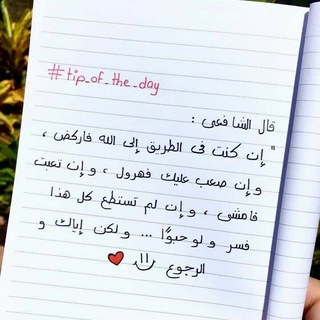 #tip_of_the_day
قال الشافعى :
" إن كنت فى الطريق إلى الله فاركض ،
وإن صعب عليك فهرول ، وإن تعبت
فامشى ، وإن لم تستطع كل هذا
فسر ولو حبوًا ... ولكن إياك و
الرجوع